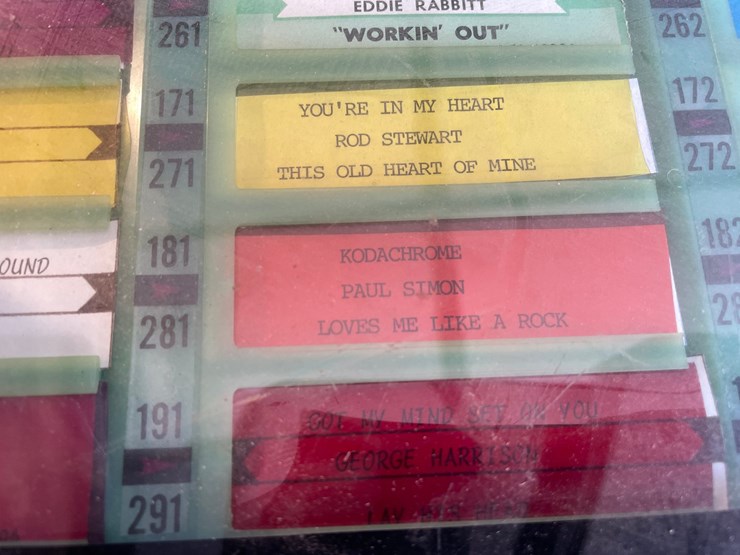 EDDIE RABBITT
261
"WORKIN' OUT"
262
171
YOU'RE IN MY HEART
172
ROD STEWART
271
THIS OLD HEART OF MINE
272
OUND
181
KODACHROME
182
PAUL SIMON
281
LOVES ME LIKE A ROCK
28
191
GOT MY MIND SET ON YOU
GEORGE HARRISON
291
LAY HIS HEAD